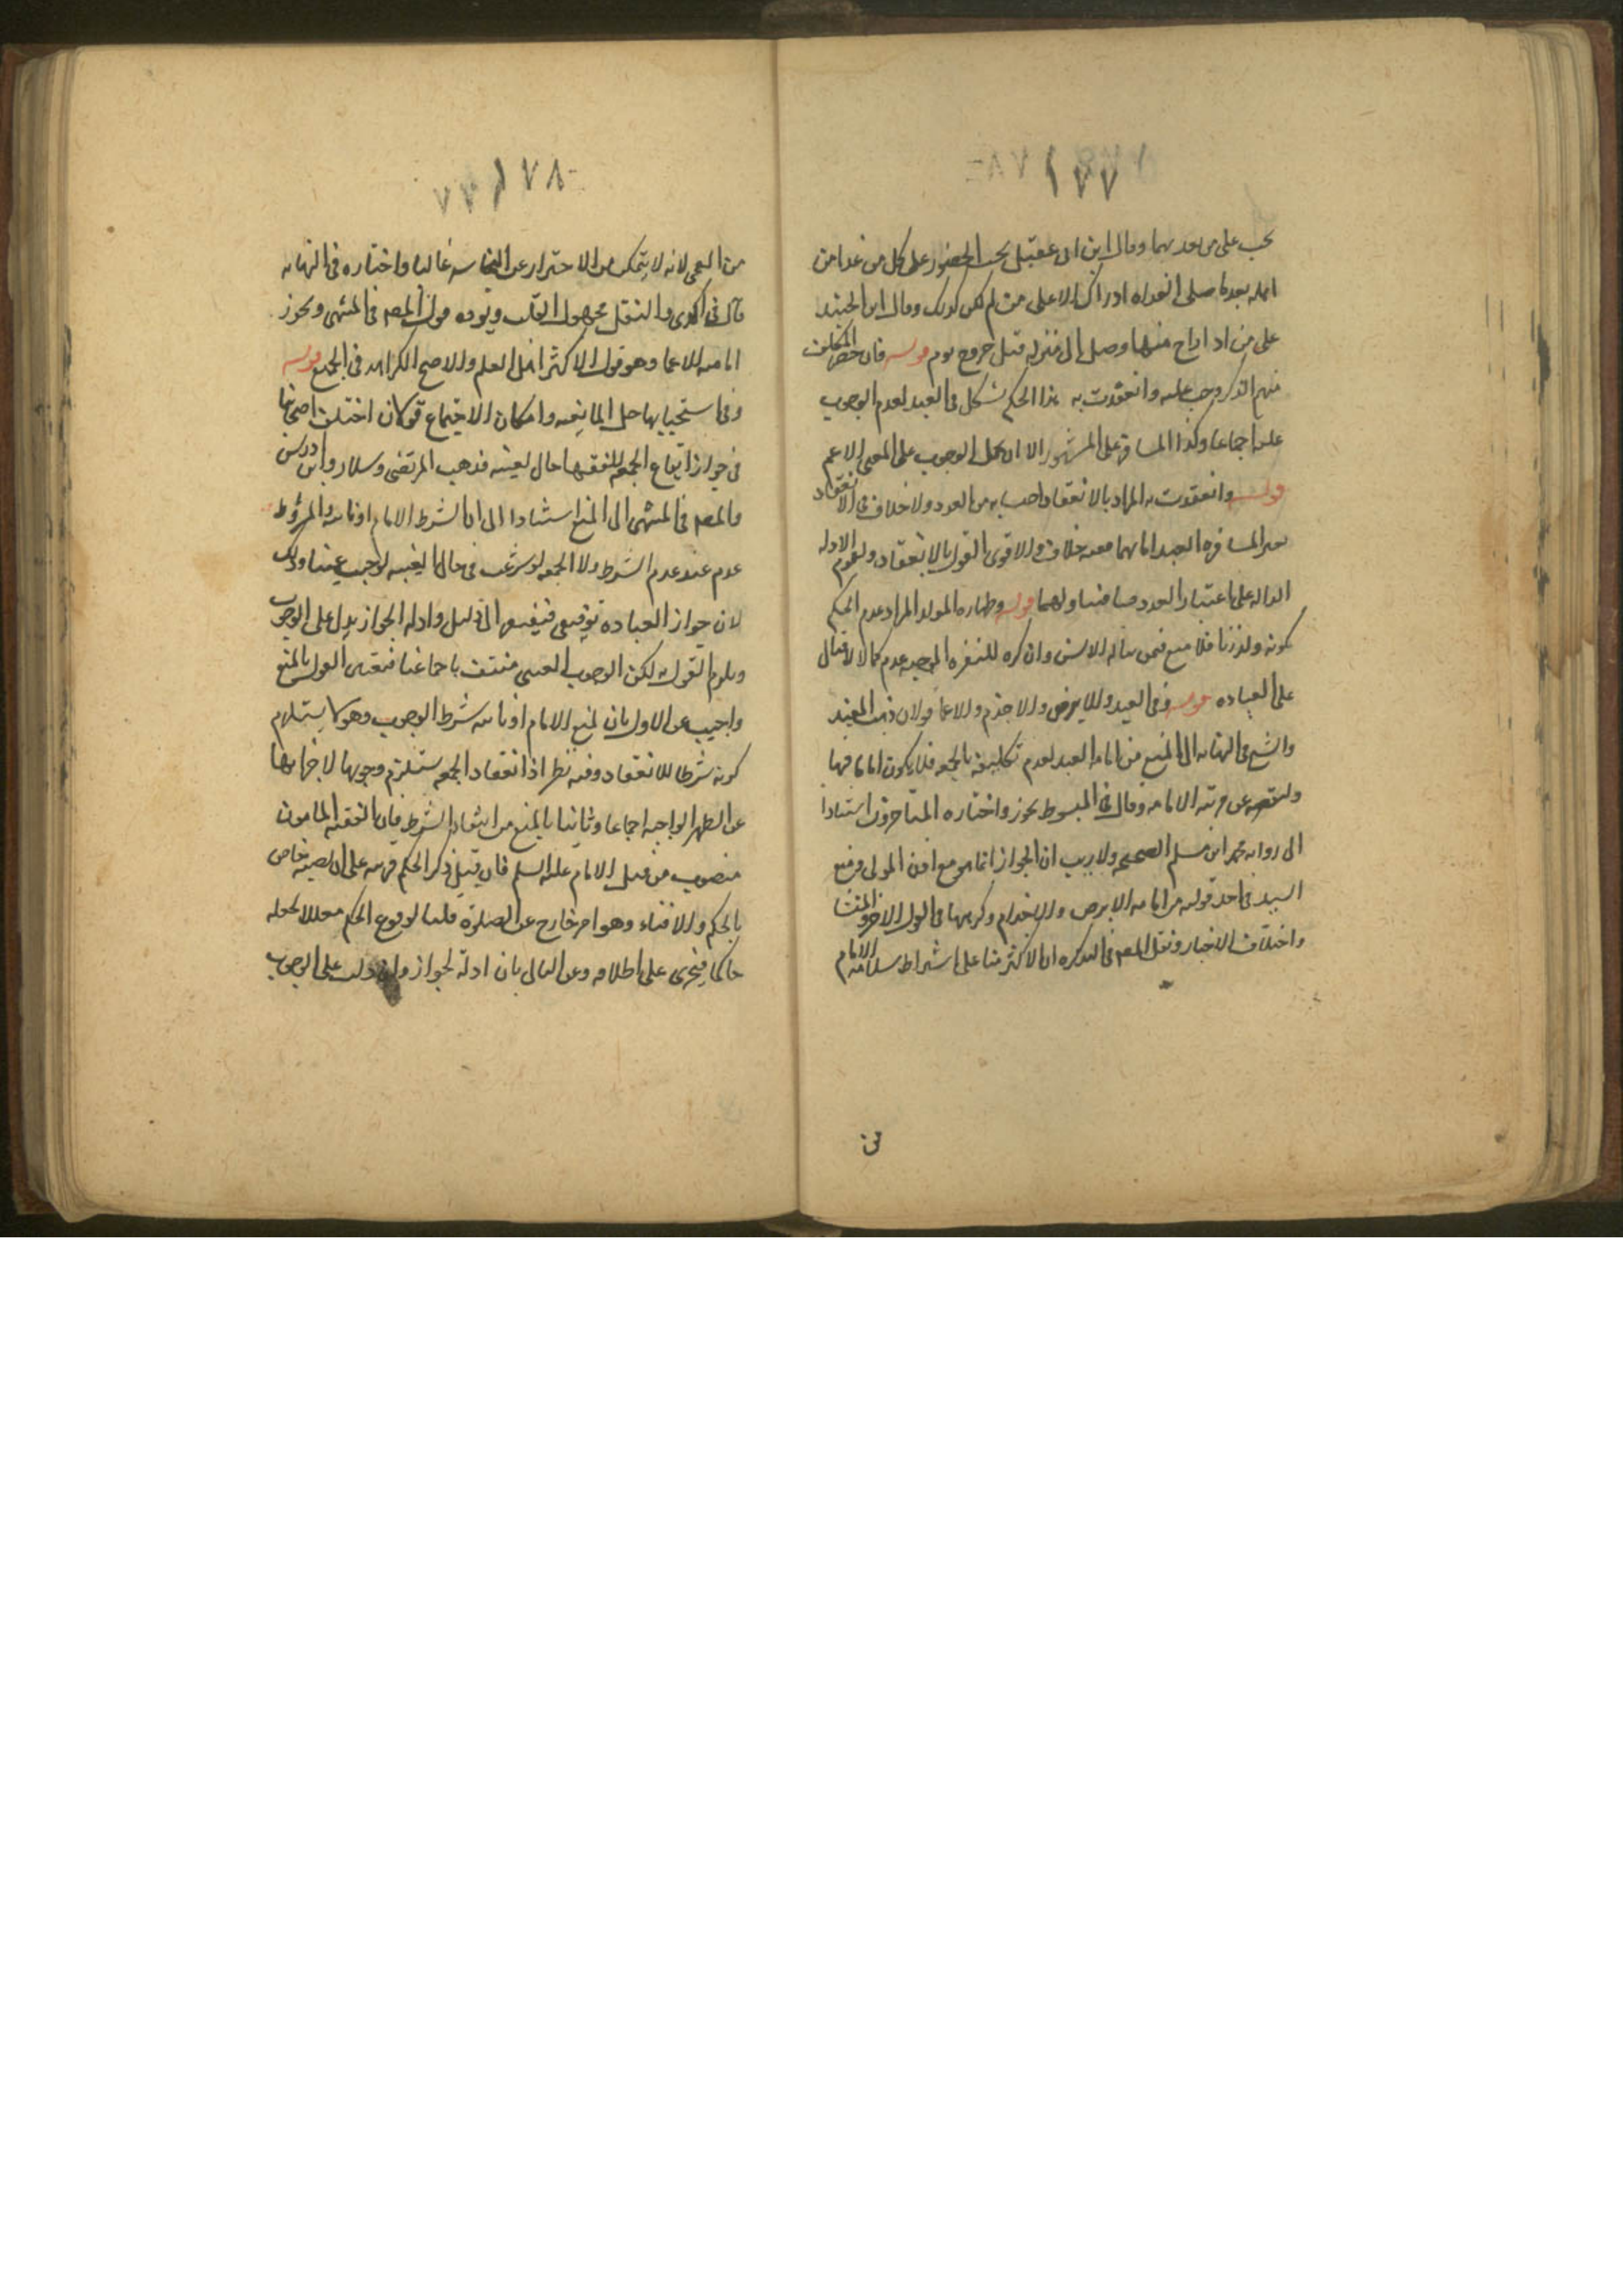 ١٧٧
يجب على من بعد بهما وقال ابن ابى عقيل يجب الحضور على كل من غدا من
اهله بعد ما صلى الغداه ادراك لا على من لم يكن كذلك وقال ابن الجنيد
على من اذا راح منها وصل الى منزله قبل خروج يوم قوله فان حضر المكلف
منهم الذكر وجب عليه وانعقدت به هذا الحكم يشكل فى العبد لعدم الوجوب
عليه اجماعا وكذا المسافر على المشهور الا ان يحمل الوجوب على المعنى الاعم
قوله وانعقدت به المراد بالانعقاد احتسابه من العدد ولا خلاف فى الانعقاد
بغير المسافر والعبد اما بهما ففيه خلاف والاقوى القول بالانعقاد ولعموم الادله
الداله على اعتبار العدد وتناولهما قوله وطهاره المولد المراد عدم الحكم
كونه ولد زنا فلا منع فيمن تناله الالسن وان كره للنفره الموجبه عدم كمال الاقبال
على العباده قوله وفى العبد والابرص والاجذم والاعمى قولان ذهب المفيد
والشيخ فى النهايه الى المنع من امامه العبد لعدم تكليفه بالجمعه فلا يكون اماما فيها
ولنقصه عن مرتبه الامامه وقال فى المبسوط يجوز واختاره المتاخرون استنادا
الى روايه محمد ابن مسلم الصحيحه ولا ريب ان الجواز انما هو مع اذن المولى ومنع
السيد فى احد قوليه من امامه الابرص والاجذام وكرهها فى القول الاخر والمنشا
واختلاف الاخبار ونقل المصنف فى التذكره ان الاكثر منا على اشتراط سلامه الامام
فى
١٧٨
من العمى لانه لا يتمكن من الاحتراز عن النجاسه غالبا واختاره فى النهايه
قال فى الذكرى والنقل مجهول القائل ويؤيده قول المصنف فى المنتهى ويجوز
امامه الاعما وهو قول اكثر اهل العلم والاصح الكراهه فى الجميع قوله
وفى استحبابها حال الغيبه وامكان الاجتماع قولان اختلف اصحابنا
فى جواز ايقاع الجمعه للفقها حال الغيبه فذهب المرتضى وسلار وابن ادريس
والمصنف فى المنتهى الى المنع استنادا الى ان الشرط الامام او نائبه والمشروط
عدم عند عدم الشرط ولا الجمعه لو شرعت فى حال الغيبه لوجب عينا وذلك
لان جواز العباده توقيفى فيفتقر الى دليل وادله الجواز يدل على الوجوب
ويلزم القول به لكن الوجوب العينى منتف باجماعنا فتعين القول بالمنع
واجيب عن الاول بان نمنع الامام او نائبه شرط الوجوب وهو لا يستلزم
كونه شرطا للانعقاد وفيه نظر اذ انعقاد الجمعه يستلزم وجوبها لاجزائها
عن الظهر الواجبه اجماعا وثانيا بالمنع من انتفاء الشرط فان الفقيه المامون
منصوب من قبل الامام عليه السلم فان قيل ذكر الحكم قرينه على ان نصبه خاص
بالحكم والافتاء وهو امر خارج عن الصلوة قلنا لوقوع الحكم معللا بجعله
حاكما فيجرى على اطلاقه وعن الثانى بان ادلة الجواز وان دلت على الوجوب